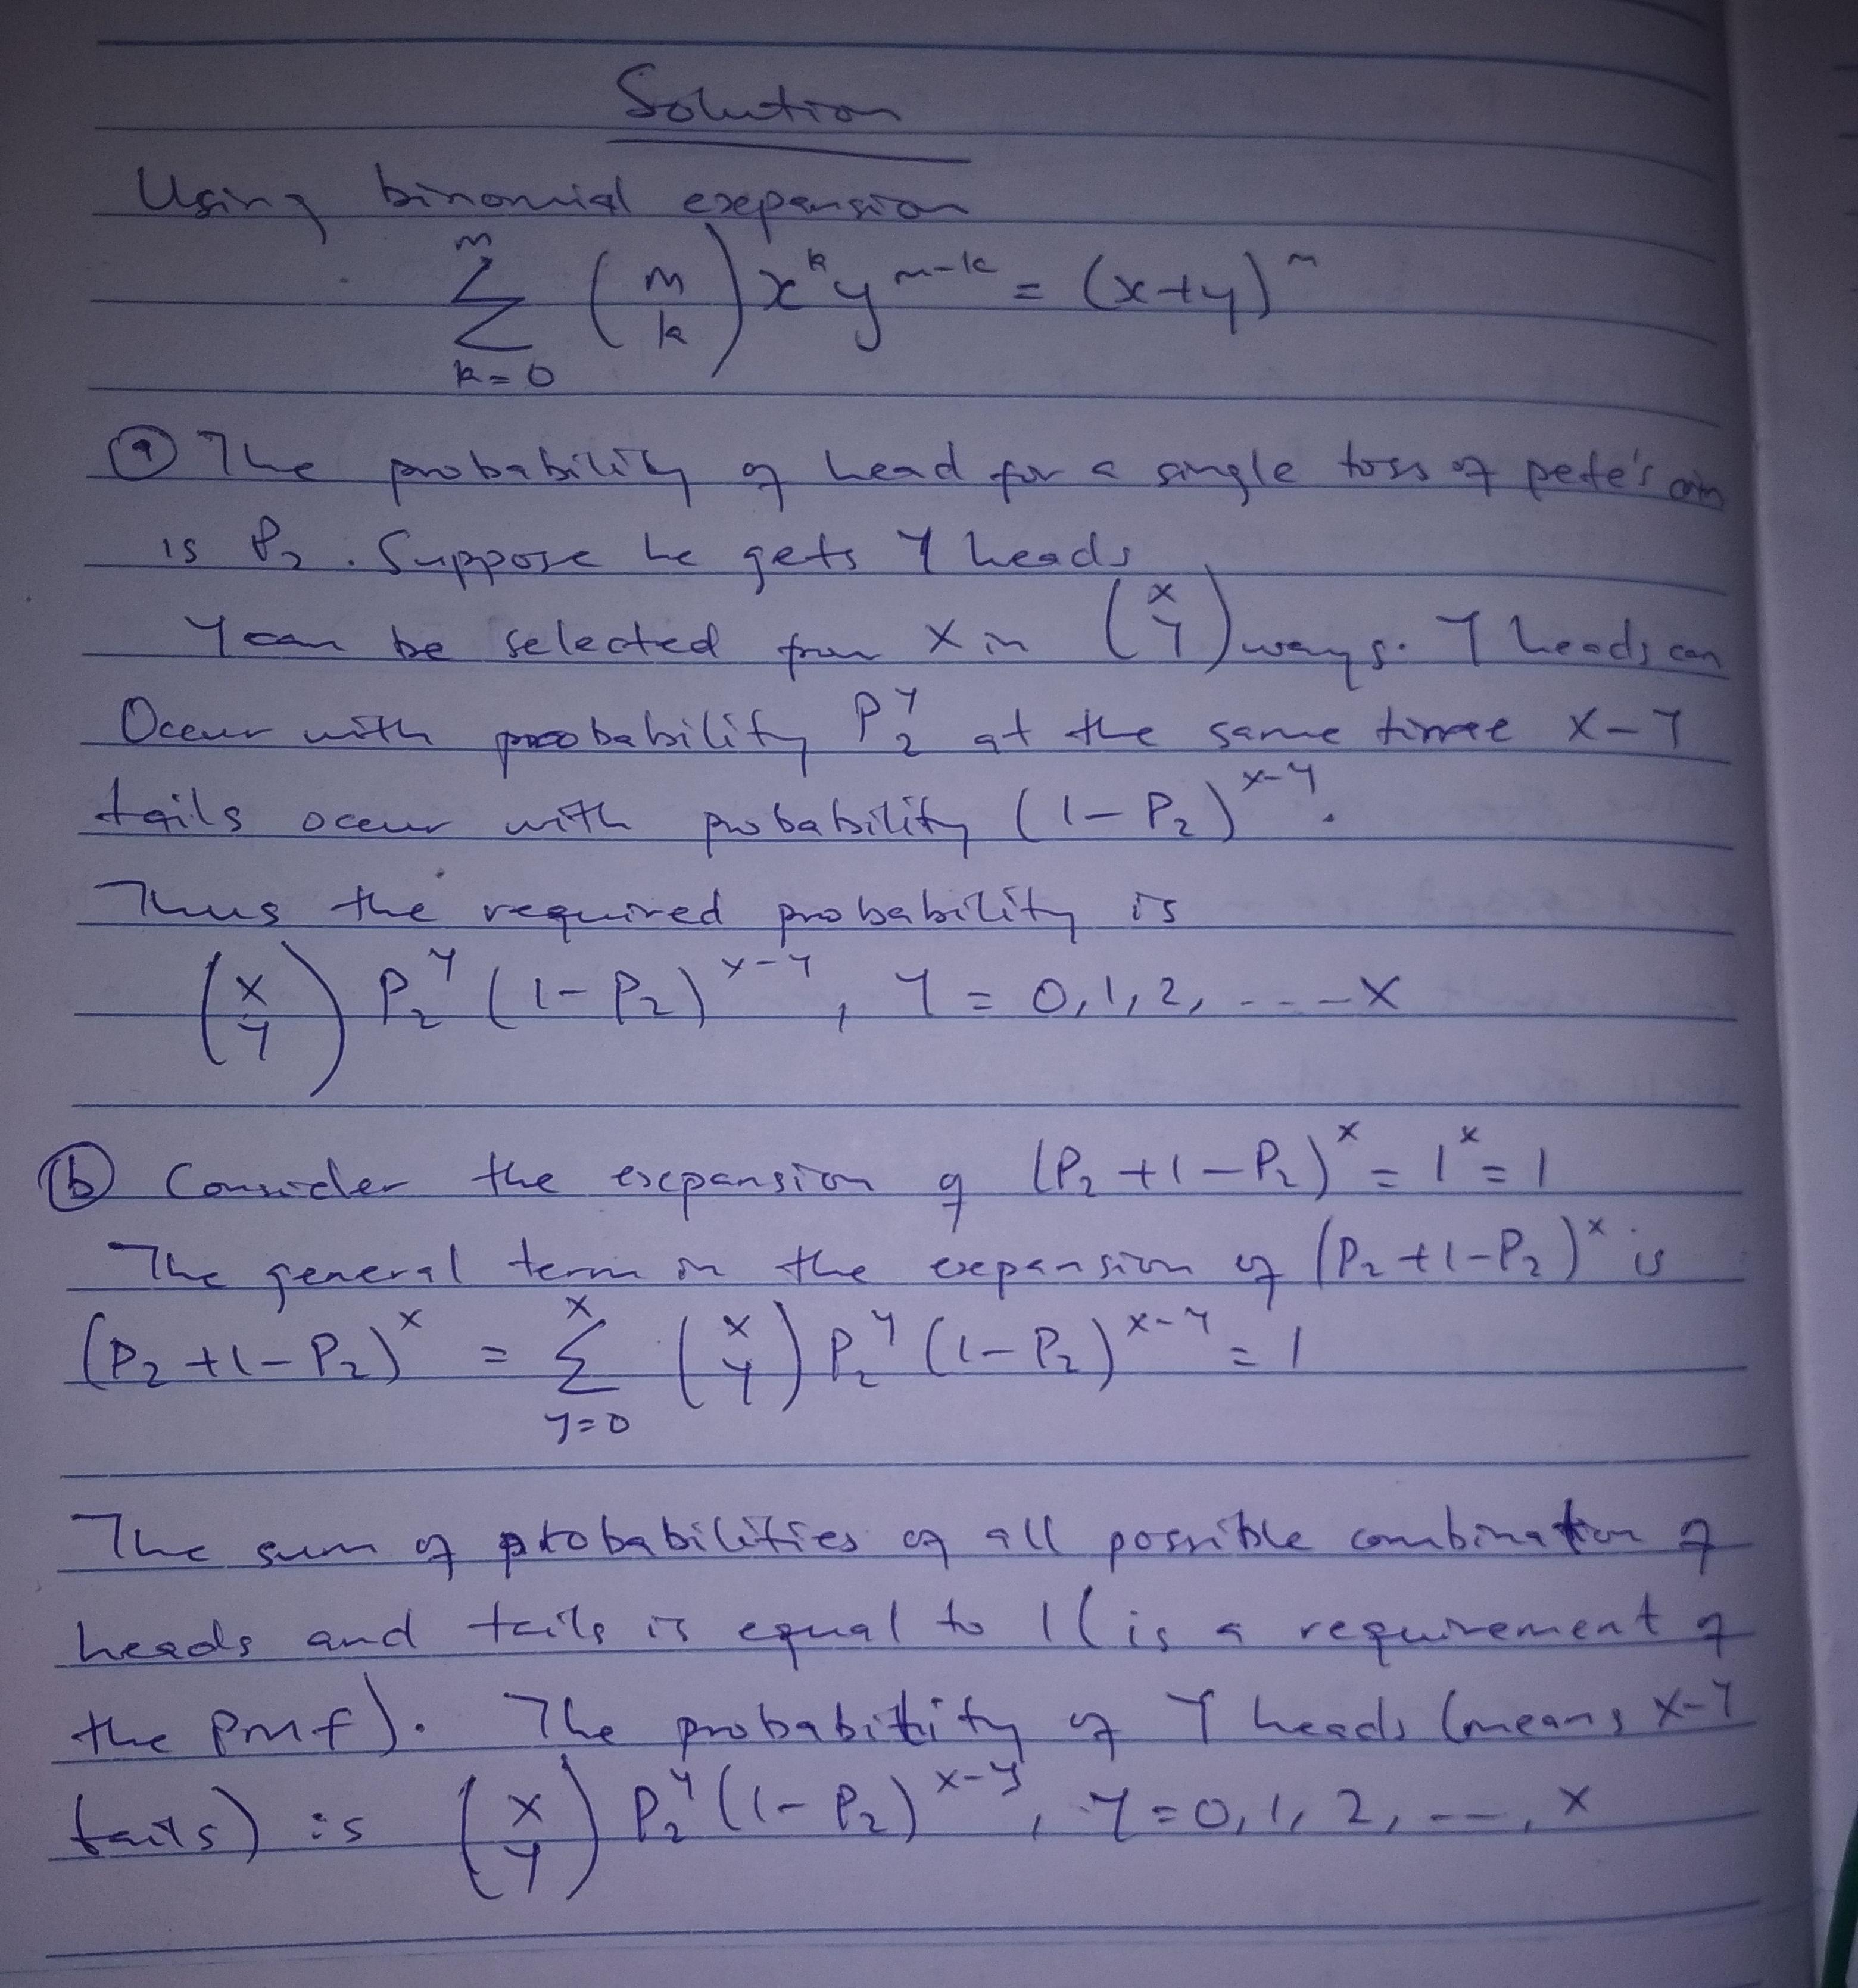 Solution
Using binomial expansion
∑_{k=0}^{m} (m k) x^k y^{m-k} = (x+y)^m
(a) The probability of head for a single toss of pete's coin
is P₂. Suppose he gets Y heads
Y can be selected from X in (X Y) ways. Y heads can
Occur with probability P₂^Y at the same time X-Y
tails occur with probability (1-P₂)^{X-Y}.
Thus the required probability is
(X Y) P₂^Y (1-P₂)^{X-Y}, Y = 0,1,2,---X
(b) Consider the expansion of (P₂+1-P₂)^X = 1^X = 1
The general term in the expansion of (P₂+1-P₂)^X is
(P₂+1-P₂)^X = ∑_{Y=0}^{X} (X Y) P₂^Y (1-P₂)^{X-Y} = 1
The sum of probabilities of all possible combination of
heads and tails is equal to 1 (is a requirement of
the Pmf). The probability of Y heads (means X-Y
tails) is (X Y) P₂^Y (1-P₂)^{X-Y}, Y=0,1,2,---,X